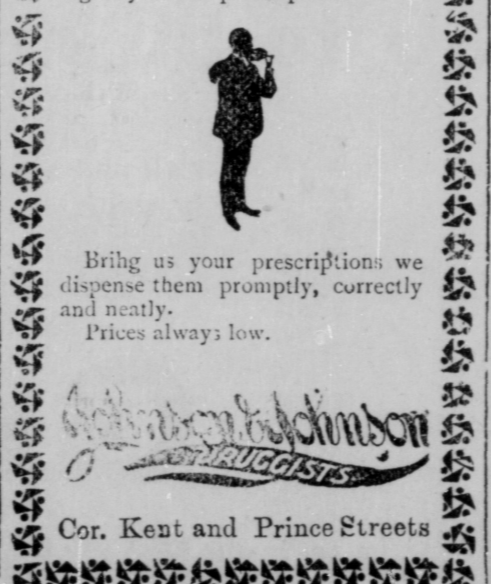 Brihg us your prescriptions we
dispense them promptly, correctly
and neatly.
Prices always low.
Johnson & Johnson
DRUGGISTS
Cor. Kent and Prince Streets